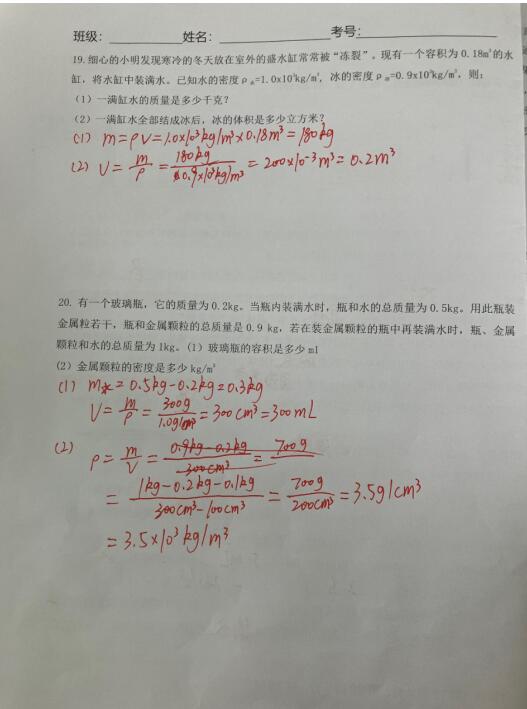 班级: 姓名: 考号:
19.细心的小明发现寒冷的冬天放在室外的盛水缸常常被“冻裂”。现有一个容积为 0.18m³的水
缸，将水缸中装满水。已知水的密度ρ水=1.0x10³kg/m³，冰的密度ρ冰=0.9x10³kg/m³，则:
(1) 一满缸水的质量是多少千克?
(2) 一满缸水全部结成冰后，冰的体积是多少立方米?
(1) m=ρV=1.0x10³kg/m³x0.18m³=180kg
(2) V=m/ρ=180kg/0.9x10³kg/m³=200x10⁻³m³=0.2m³
20. 有一个玻璃瓶，它的质量为 0.2kg。当瓶内装满水时，瓶和水的总质量为 0.5kg。用此瓶装
金属粒若干，瓶和金属颗粒的总质量是 0.9 kg，若在装金属颗粒的瓶中再装满水时，瓶、金属
颗粒和水的总质量为 1kg。(1) 玻璃瓶的容积是多少 ml
(2) 金属颗粒的密度是多少 kg/m³
(1) m水=0.5kg-0.2kg=0.3kg
V=m/ρ=300g/1.0g/cm³=300cm³=300mL
(2) ρ=m/V=0.9kg-0.2kg/300cm³=700g
=1kg-0.2kg-0.1kg/300cm³-100cm³=700g/200cm³=3.5g/cm³
=3.5×10³kg/m³